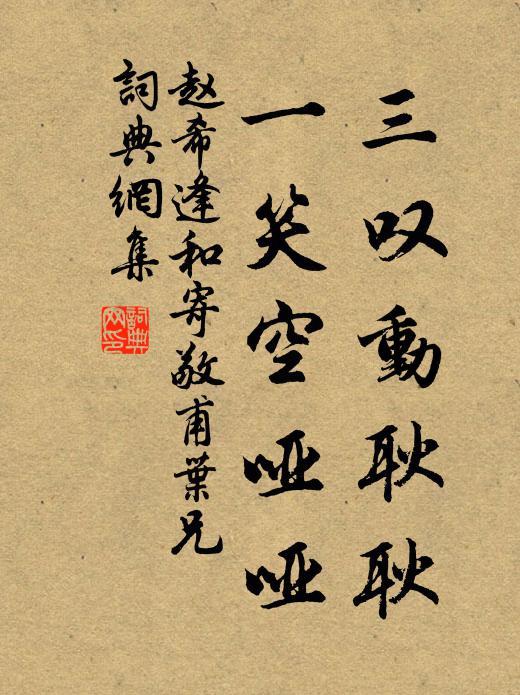 三叹動耿耿
一笑空哑哑
赵希逢和寄敬甫葉兄
詞典網集
詞典
网印